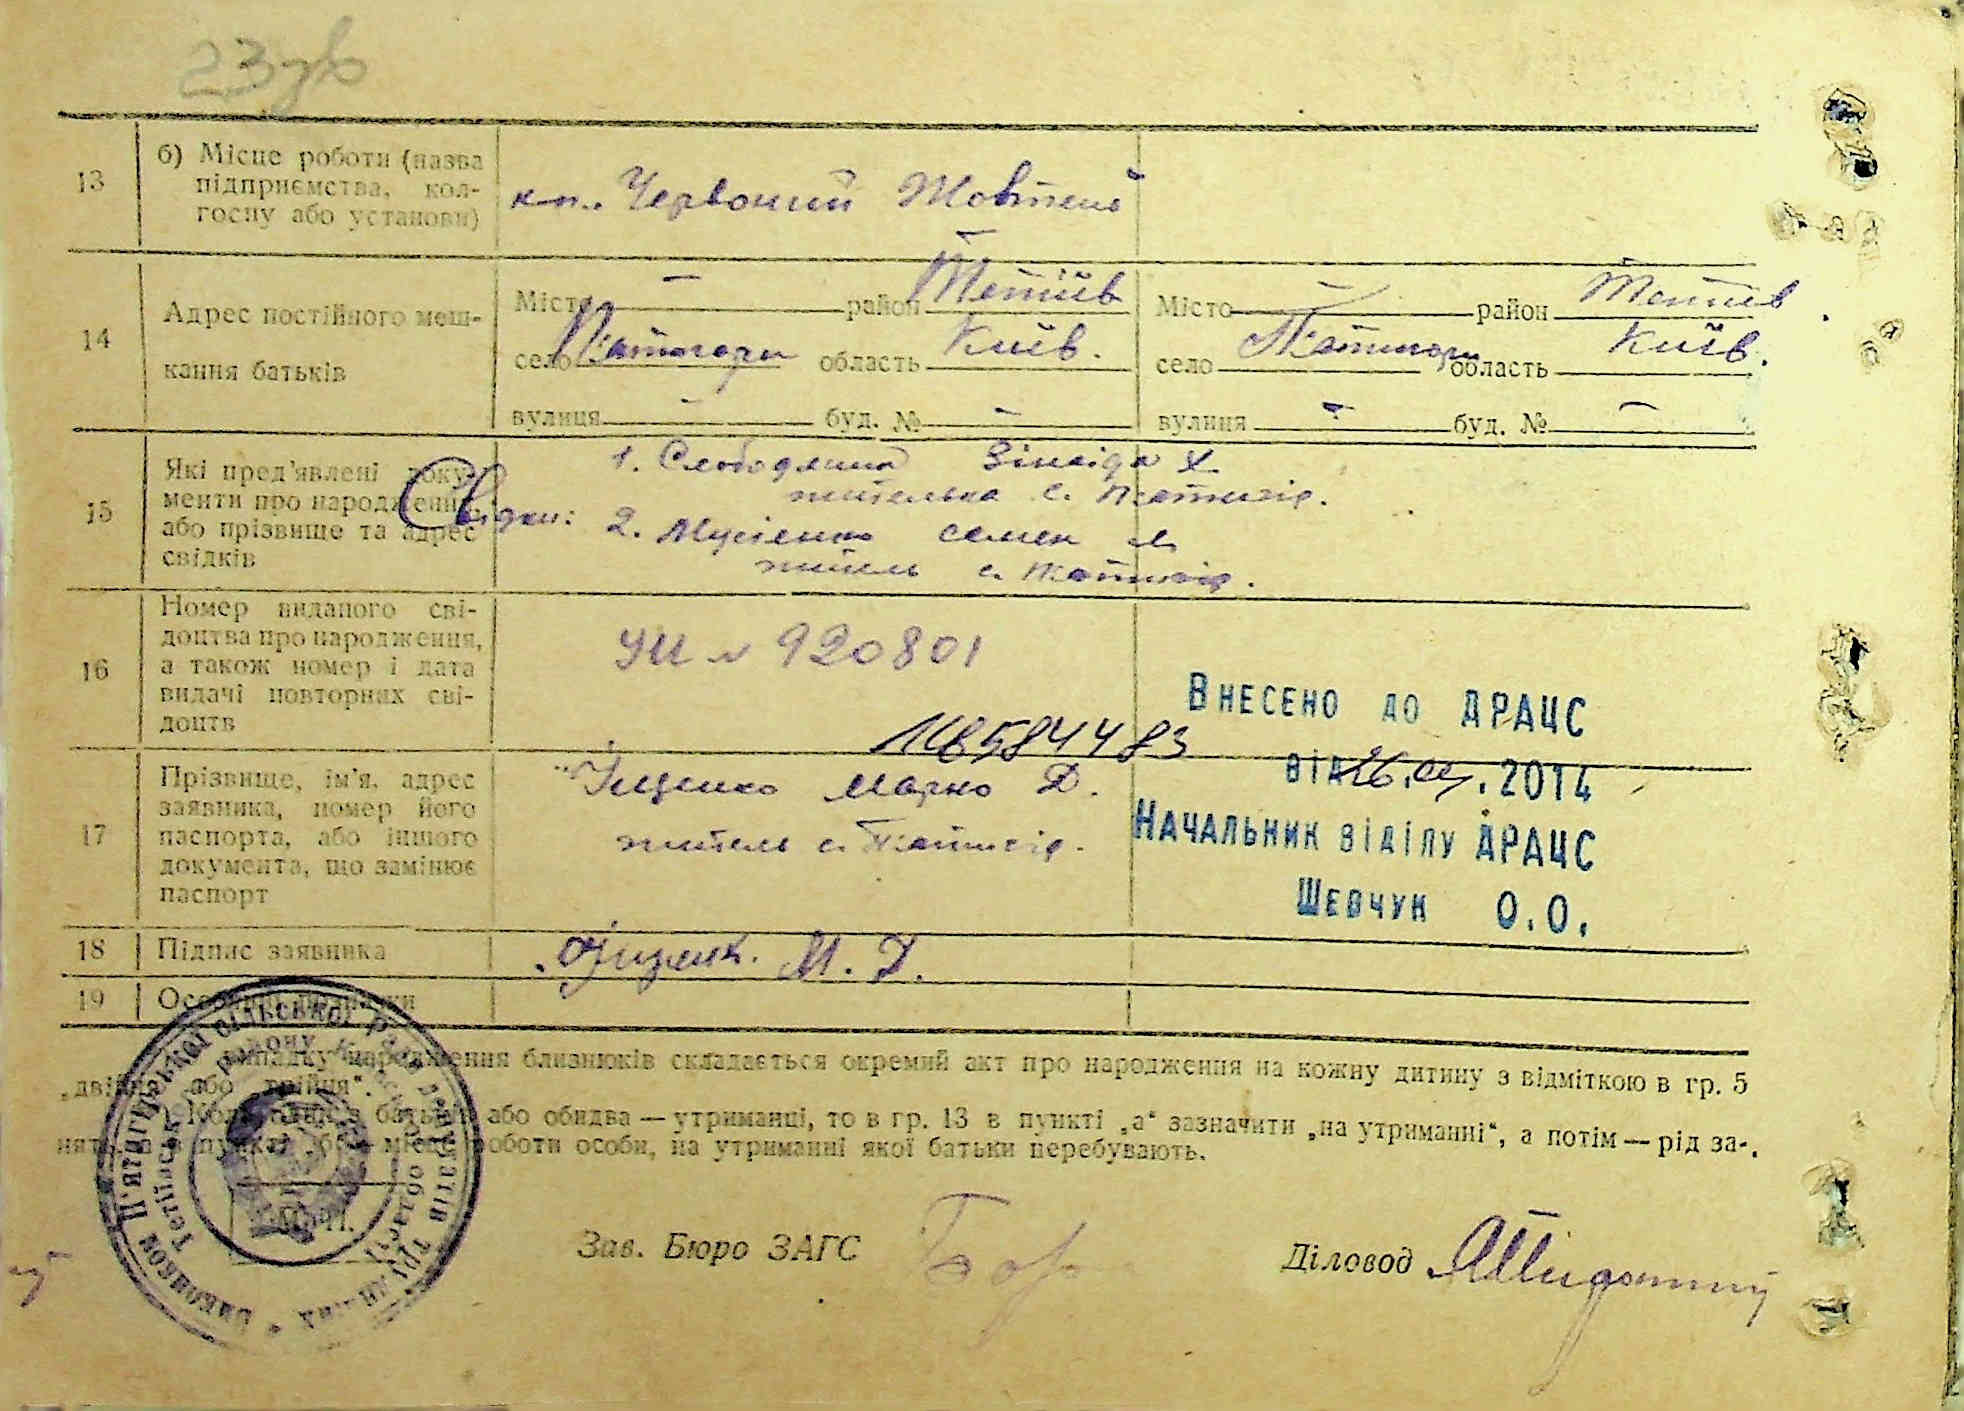 23 зв
13 б) Місце роботи (назва
підприємства, кол-
госпу або установи)
кп. Червоний Жовтень
14 Адрес постійного меш-
кання батьків
Місто — район Тетіїв Місто — район Тетіїв
село Пятигори область Київ. село Пятигори область Київ.
вулиця — буд. № — вулиця — буд. № —
15 Які пред'явлені доку-
менти про народження
або прізвище та адрес
свідків
Свідки: 1. Слободяник Зінаїда Х
жителька с. Пятигір.
2. Мусієнко Семен
житель с. Пятигір.
16 Номер виданого сві-
доцтва про народження,
а також номер і дата
видачі повторних сві-
доцтв
УШ № 920801
584483
Внесено до ДРАЦС
від 26. .2014
Начальник відділу ДРАЦС
Шевчук О.О.
17 Прізвище, ім'я, адрес
заявника, номер його
паспорта, або іншого
документа, що замінює
паспорт
Іщенко Марко Д.
житель с. Пятигір.
18 Підпис заявника
М. Д.
19 Особливі відмітки
випадку народження близнюків складається окремий акт про народження на кожну дитину з відміткою в гр. 5
„двійня або трійня".
Коли один з батьків або обидва — утриманці, то в гр. 13 в пункті „а" зазначити „на утриманні", а потім — рід за-
нять, а в пункті „б" — місце роботи особи, на утриманні якої батьки перебувають.
М. П.
Виконком П'ятигірської сільської Ради депутатів трудящих
Тетіївського району Київської області
Зав. Бюро ЗАГС
Діловод